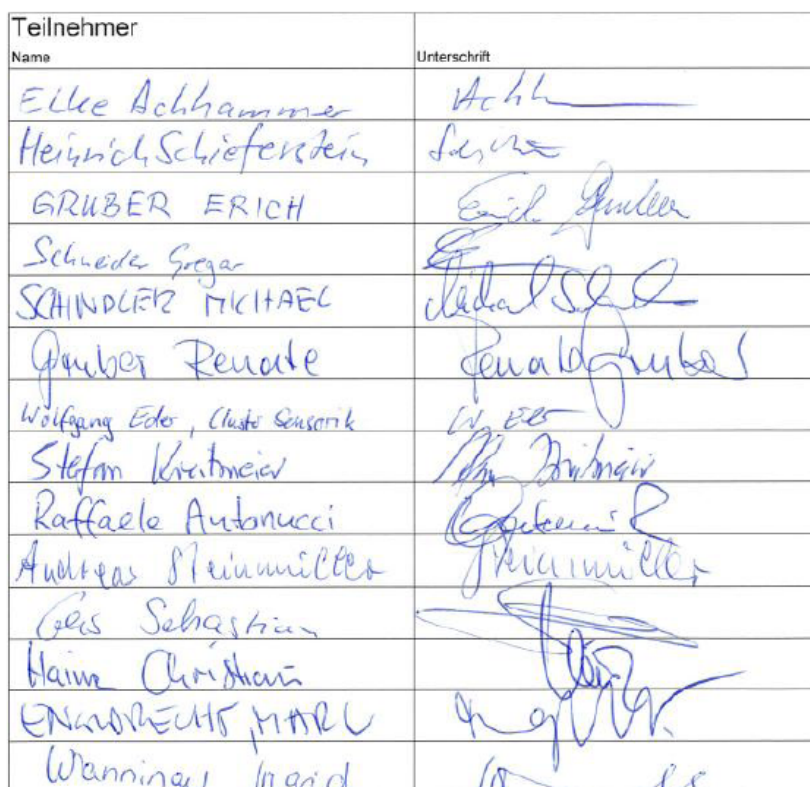 Teilnehmer
Name Unterschrift
Elke Achhammer Achh
Heinrich Schieferstein
GRUBER ERICH Erich Gruber
Schneider Gregor
SCHINDLER MICHAEL Michael
Gruber Renate Renate Gruber
Wolfgang Eder, Cluster Sensorik W. Eder
Stefan Kreitmeier Kreitmeier
Raffaele Antonucci
Andreas Steinmüller Steinmüller
Sebastian
Christian
ENGLBRECHT, MARK
Wanninger Ingrid